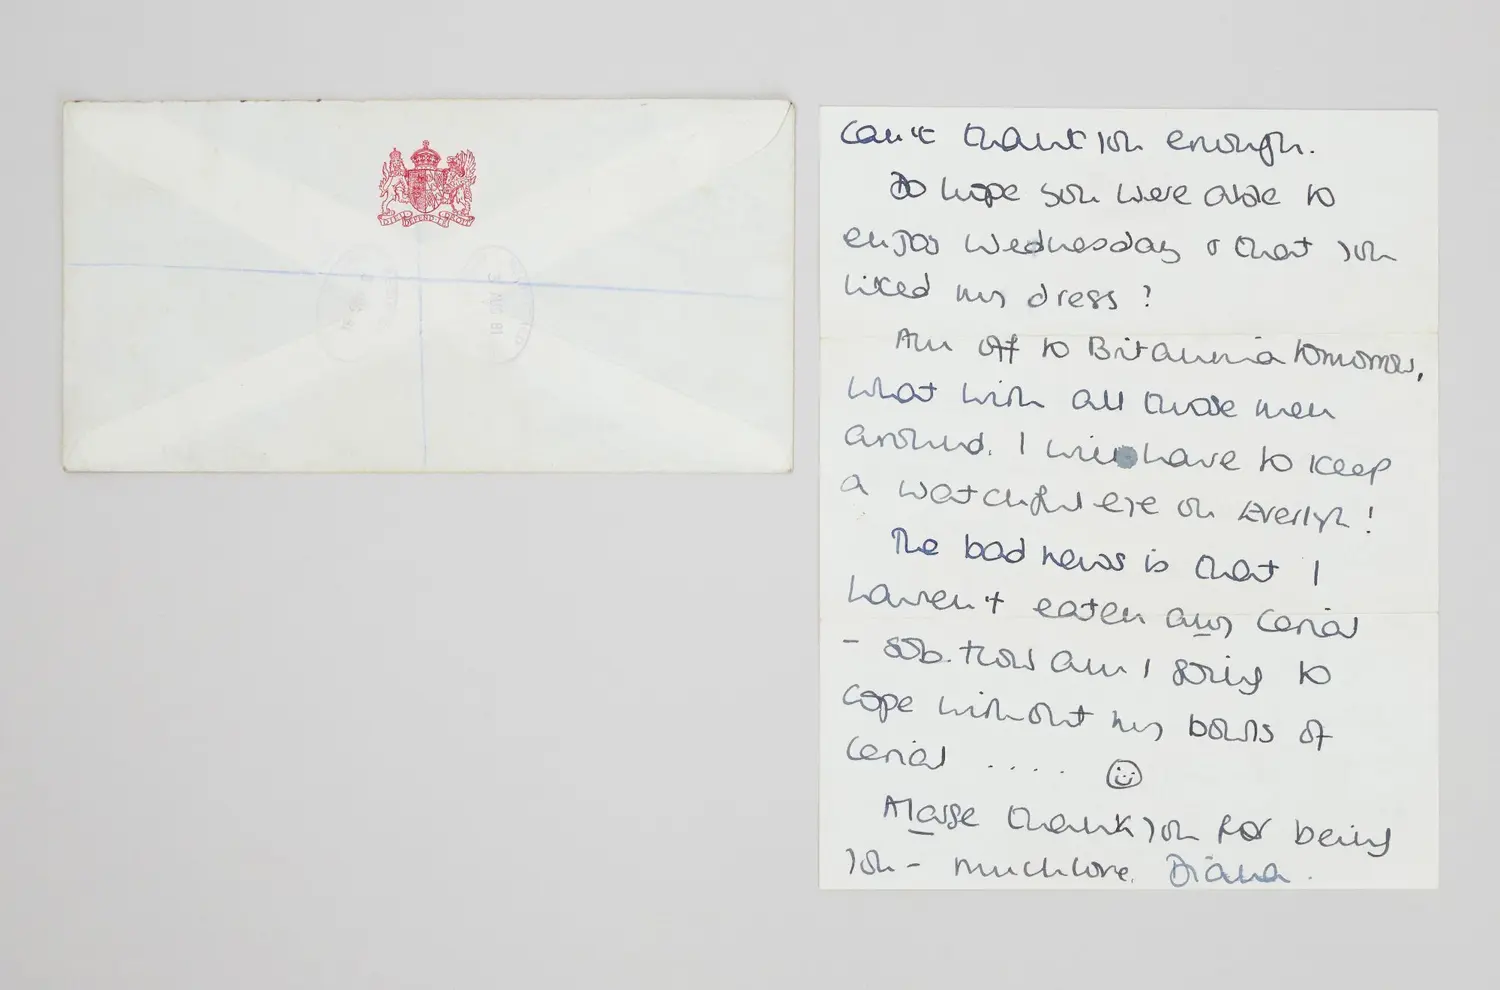 DIEU ET MON DROIT
AUG 81
can't thank you enough.
Do hope you were able to
enjoy Wednesday & that you
liked my dress?
Am off to Britannia tomorrow,
what with all those men
around. I will have to keep
a watchful eye on Everlyn!
The bad news is that I
haven't eaten any cerial
– sob. How am I going to
cope without my bowls of
cerial .... ☺
A large thank you for being
you – much love. Diana.